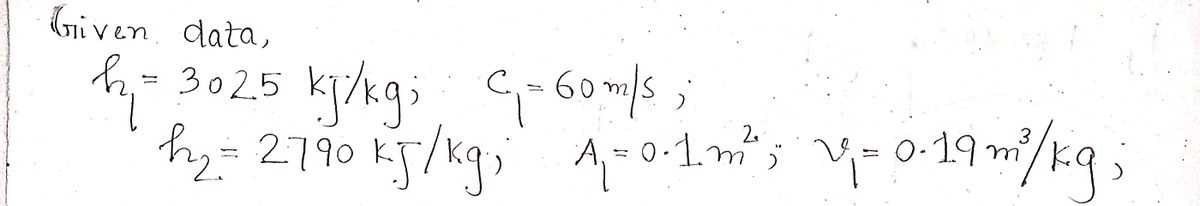 Given data,
h₁ = 3025 kJ/kg; C₁ = 60 m/s ;
h₂ = 2790 kJ/kg; A₁ = 0.1 m²; v₁ = 0.19 m³/kg ;